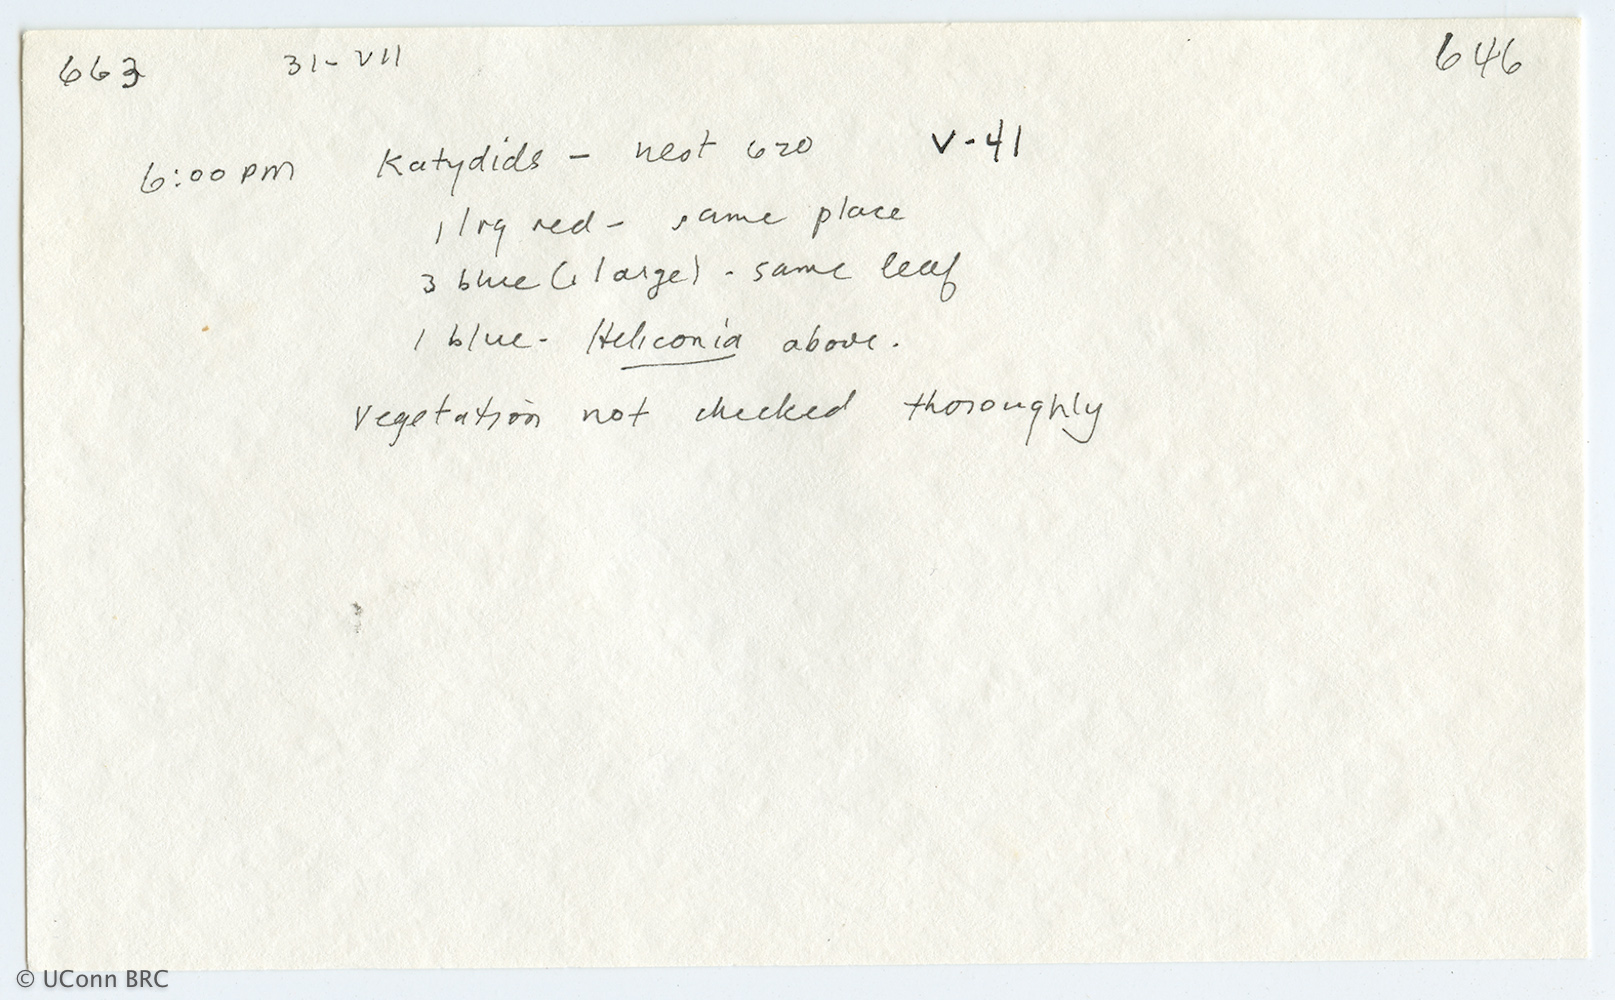 663 31-VII 646
6:00 pm Katydids - nest 620 V-41
1 lrg red - same place
3 blue (1 large) - same leaf
1 blue - Heliconia above.
Vegetation not checked thoroughly
© UConn BRC